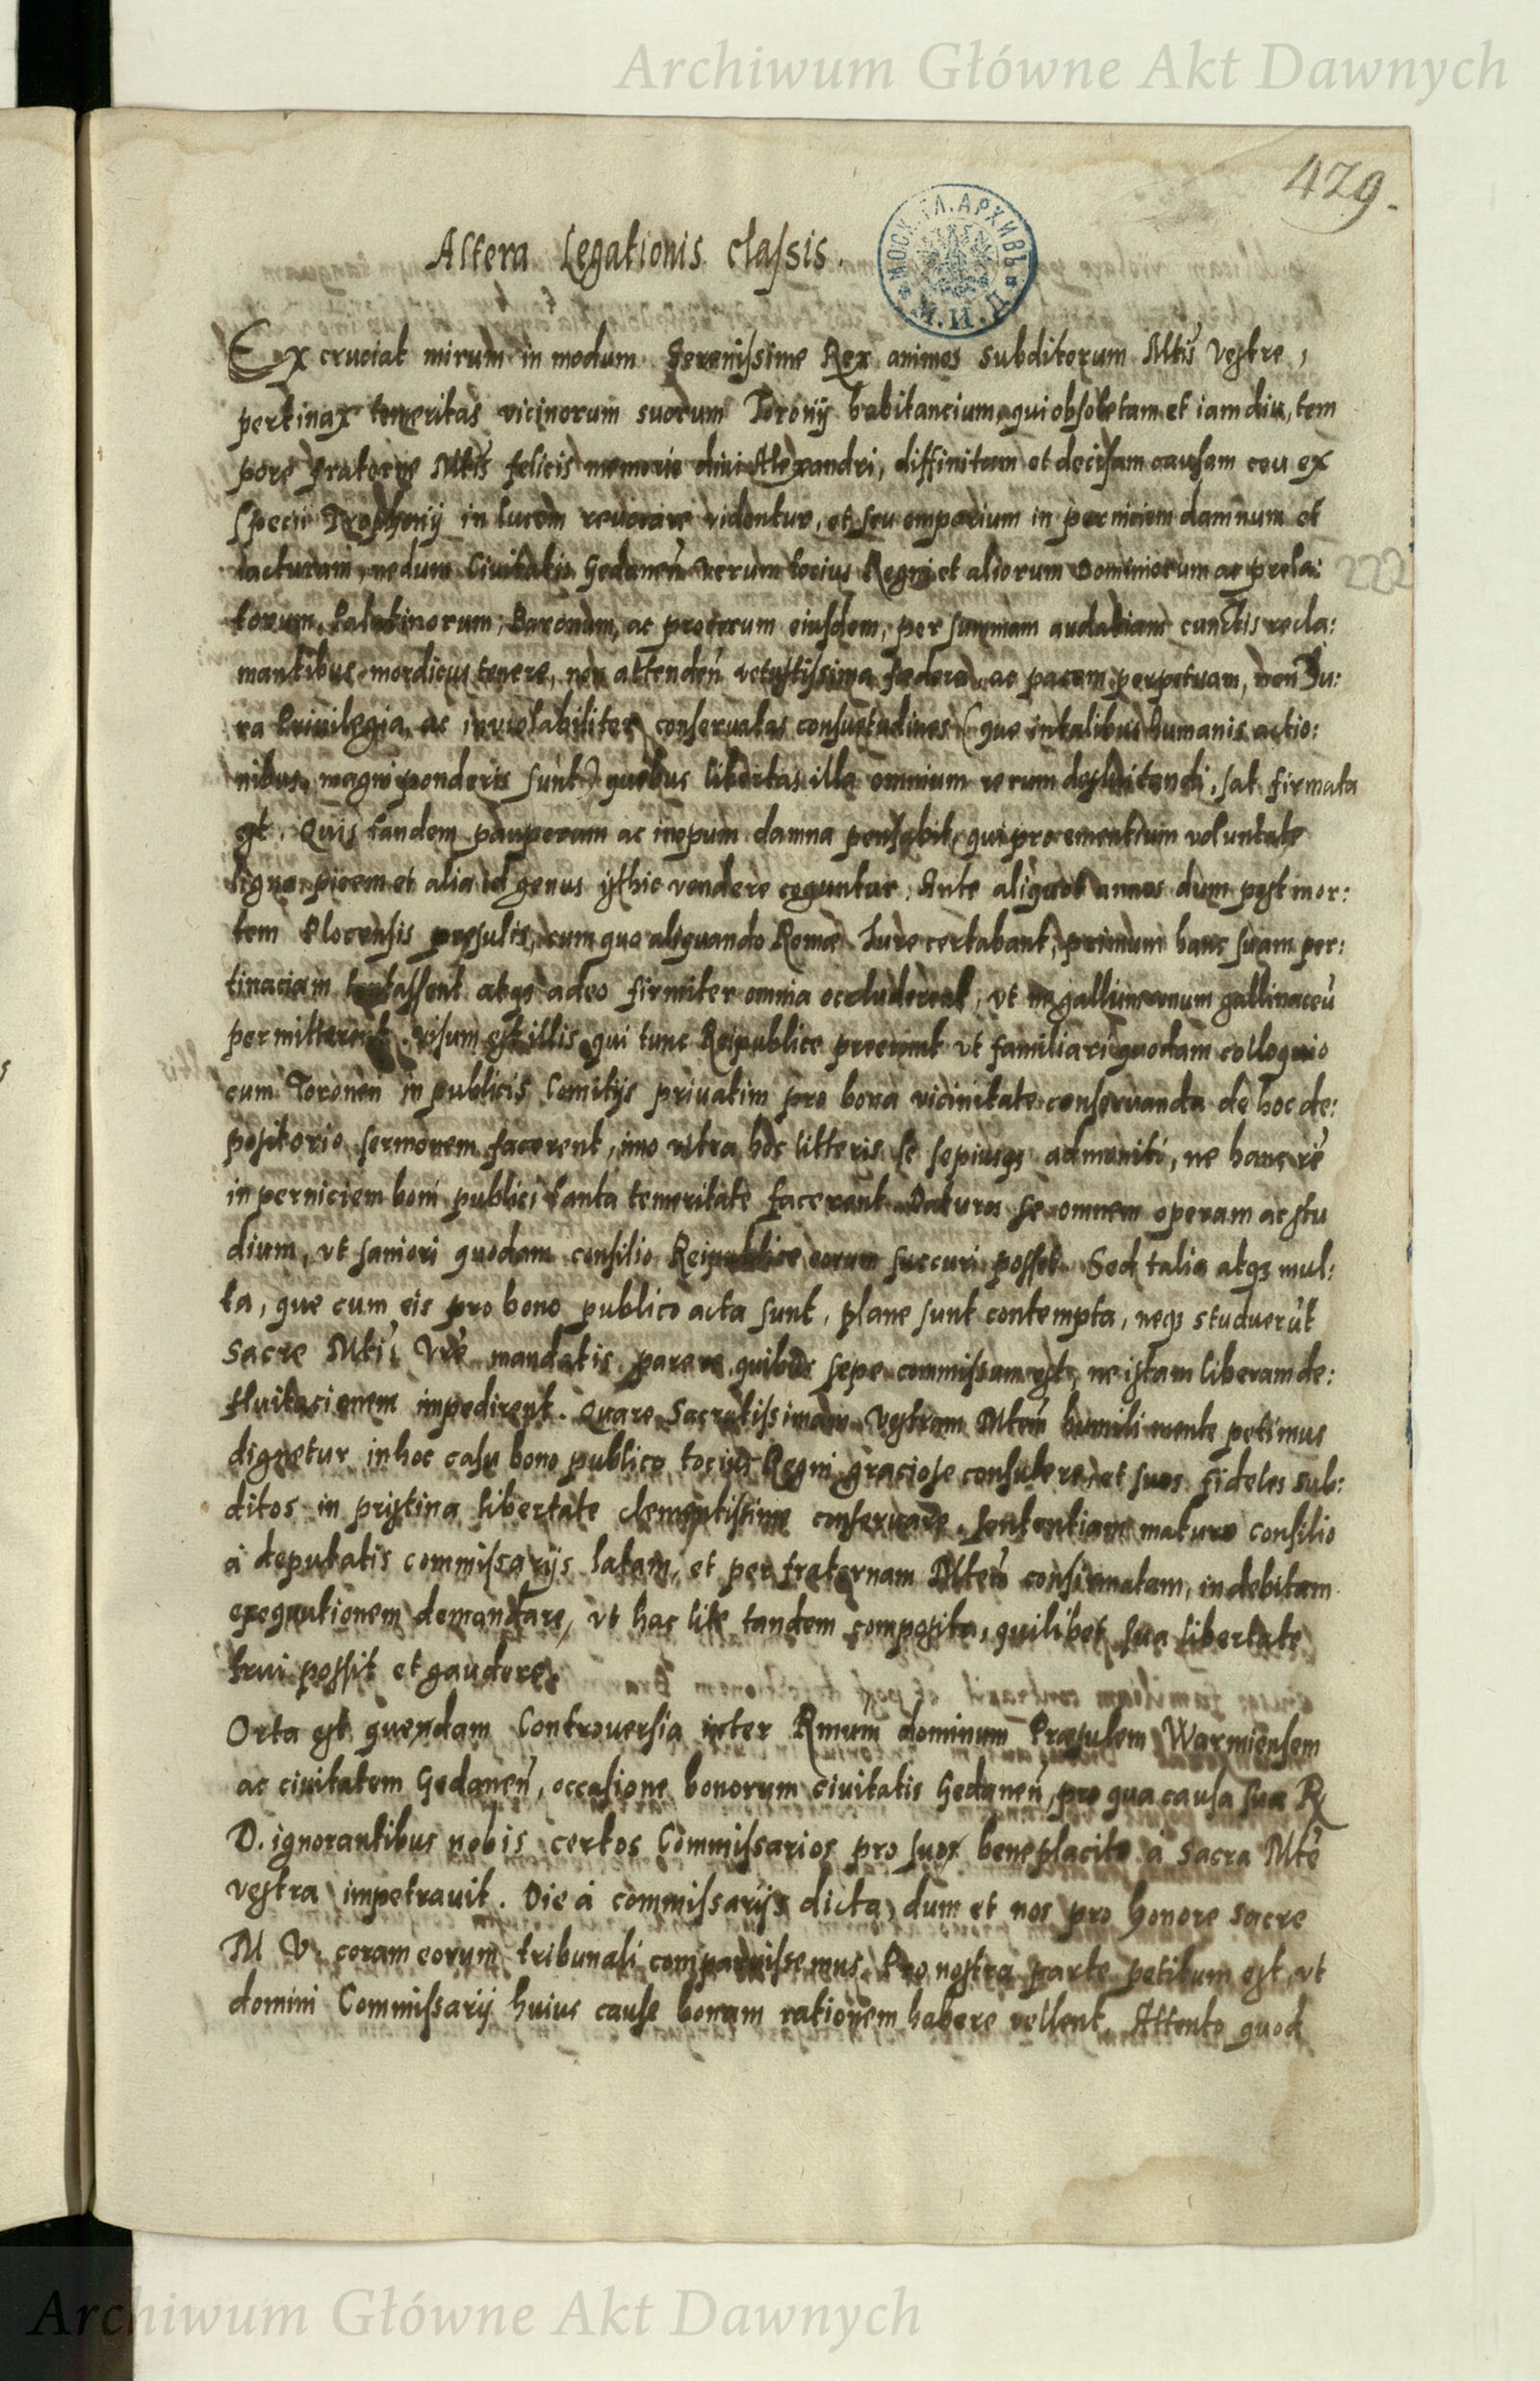 Archiwum Główne Akt Dawnych
429.
Altera Legationis classis.
МОСК. ГЛ. АРХИВЪ
Ex cruciat mirum in modum Serenissime Rex animos subditorum Mtis vestre,
pertinax temeritas vicinorum suorum Toronij habitancium, qui obsoletam et iam diu, tem
pore fraterne Mtis felicis memorie divi Alexandri, diffinitam et decisam causam ceu ex
specu Trophonij in lucem revocare videntur, et seu emporium in perniciem damnum et
iacturam, nedum Civitatis Gedanen verum tocius Regni et aliorum Dominiorum ac prela:
222
torum, Palatinorum, Baronum, ac procerum eiusdem, per summam audatiam cunctis recla:
mantibus mordicus tenere, non attenden vetustissima foedera, ac pacem perpetuam, non Ju:
ra Privilegia, ac inviolabiliter conservatas consuetudines (que in talibus humanis actio:
nibus magni ponderis sunt) quibus libertas illa omnium rerum defluitandi, sat firmata
est. Quis tandem pauperum ac inopum damna pensabit, qui pro ementium voluntate
ligna picem et alia id genus isthic vendere coguntur. Ante aliquot annos dum post mor:
tem Plocensis presulis, cum quo aliquando Rome Jure certabant, primum hanc suam per:
tinaciam tentassent atque adeo firmiter omnia occluderent, ut ne gallum unum gallinaceu
permitterent. visum est illis qui tunc Reipublice preerant ut familiari quodam colloquio
cum Toronen in publicis Comitijs privatim pro bona vicinitate conservanda de hoc de:
positorio sermonem facerent, imo ultra hoc litteris se sepiusque admoniti, ne hanc re
in perniciem boni publici tanta temeritate facerent. Daturos se omnem operam ac stu
dium, ut saniori quodam consilio Reipublice eorum succuri posset. Sed talia atque mul:
ta, que cum eis pro bono publico acta sunt, plane sunt contempta, neque studuerut
Sacre Mtis Vre mandatis parere quibus sepe commissum est, ne istam liberam de:
fluitacionem impedirent. Quare Sacratissimam Vestram Mtem humili mente petimus
dignetur in hoc casu bono publico tocius Regni graciose consulere, et suos fideles sub:
ditos in pristina libertate clementissime conservare. Sententiam maturo consilio
à deputatis commissarijs latam, et per fraternam Mtem confirmatam, in debitam
exequutionem demandare, ut hac lite tandem composita, quilibet sua libertate
frui possit et gaudere.
Orta est quendam Controversia inter Rmum dominum Præsulem Warmiensem
ac civitatem Gedanen, occasione bonorum civitatis Gedanen, pro qua causa sua R
D. ignorantibus nobis certos Commissarios pro suo beneplacito à Sacra Mte
vestra impetravit. Die à commissarijs dicta, dum et nos pro honore sacre
M V. coram eorum tribunali comparuissemus. Pro nostra parte petitum est, ut
domini Commissarij huius cause bonam rationem habere vellent. Attento quod
Archiwum Główne Akt Dawnych